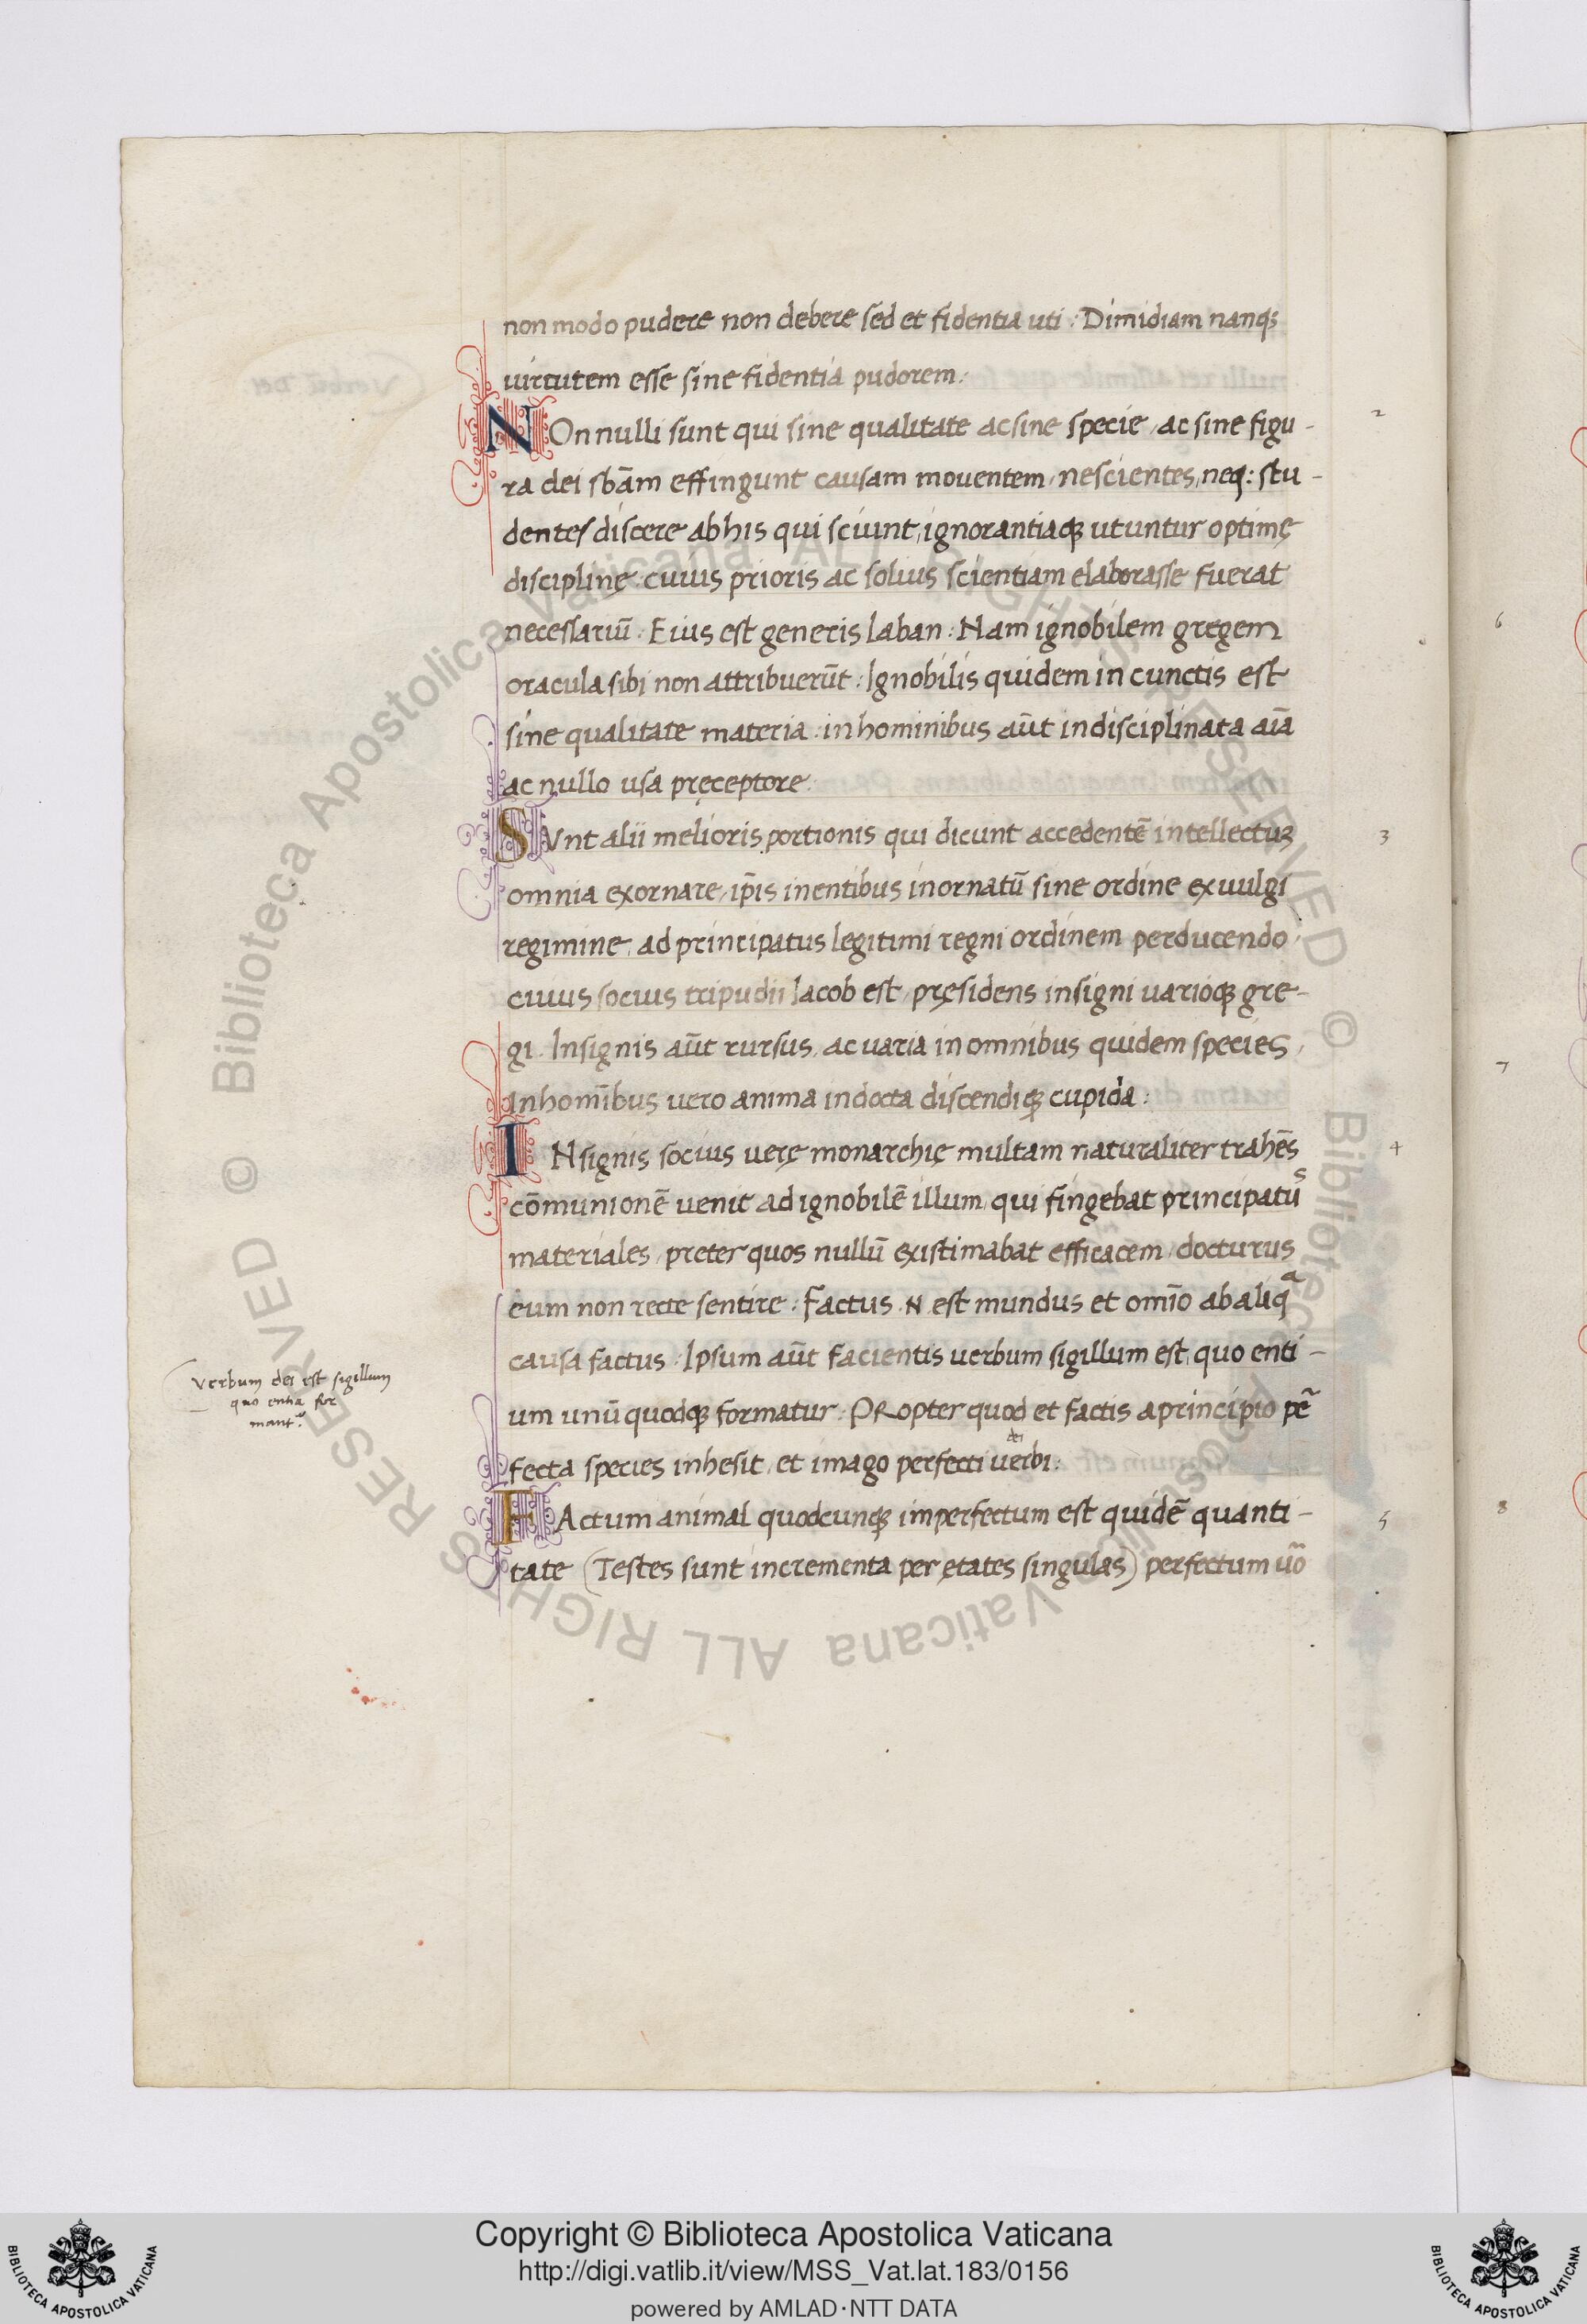 non modo pudere non debere sed et fidentia uti : Dim̄idiam nanq;
uirtutem esse sine fidentia pudorem :
NOn nulli sunt qui sine qualitate ac sine specie , ac sine figu -
ra dei sb̄am effingunt causam mouentem , nescientes , neq: stu -
dentes discere ab his qui sciunt , ignorantiaq; utuntur optimę
disciplinę . cuius prioris ac solius scientiam elaborasse fuerat
necessariū : Eius est generis laban : Nam ignobilem gregem
oracula sibi non attribuerūt : Ignobilis quidem in cunctis est
sine qualitate materia : in hominibus aūt indisciplinata aīa
ac nullo usa pręceptore :
SVnt alii melioris portionis qui dicunt accedentē intellectuȝ
omnia exornare , ip̄is inentibus inornatū sine ordine ex uulgi
regimine , ad principatus legitimi regni ordinem perducendo ,
cuius socius tripudii Iacob est , pręsidens insigni uarioq; gre -
gi . Insignis aūt rursus , ac uaria in omnibus quidem species ,
In hom̄ibus uero anima indocta discendiq; cupida :
INsignis socius uerę monarchię multam naturaliter trahēs
cōmunionē uenit ad ignobilē illum , qui fingebat principatūs
materiales , preter quos nullū existimabat efficacem , docturus
eum non recte sentire : Factus .N. est mundus et omīo ab aliqᵃ
causa factus : Ipsum aūt facientis uerbum sigillum est , quo enti -
um unū quodq; formatur : PRopter quod et factis a principio pē
fecta species inhesit , et imago perfecti uerbi :
dei
FActum animal quodcunq; imperfectum est quidē quanti -
tate (Testes sunt incrementa per ętates singulas) perfectum ūo
Verbum dei est sigillum
quo entia for
mant̃
2
3
4
5
6
7
8
Copyright © Biblioteca Apostolica Vaticana
http://digi.vatlib.it/view/MSS_Vat.lat.183/0156
powered by AMLAD·NTT DATA
BIBLIOTECA APOSTOLICA VATICANA
BIBLIOTECA APOSTOLICA VATICANA
© Biblioteca Apostolica Vaticana ALL RIGHTS RESERVED © Biblioteca Apostolica Vaticana ALL RIGHTS RESERVED